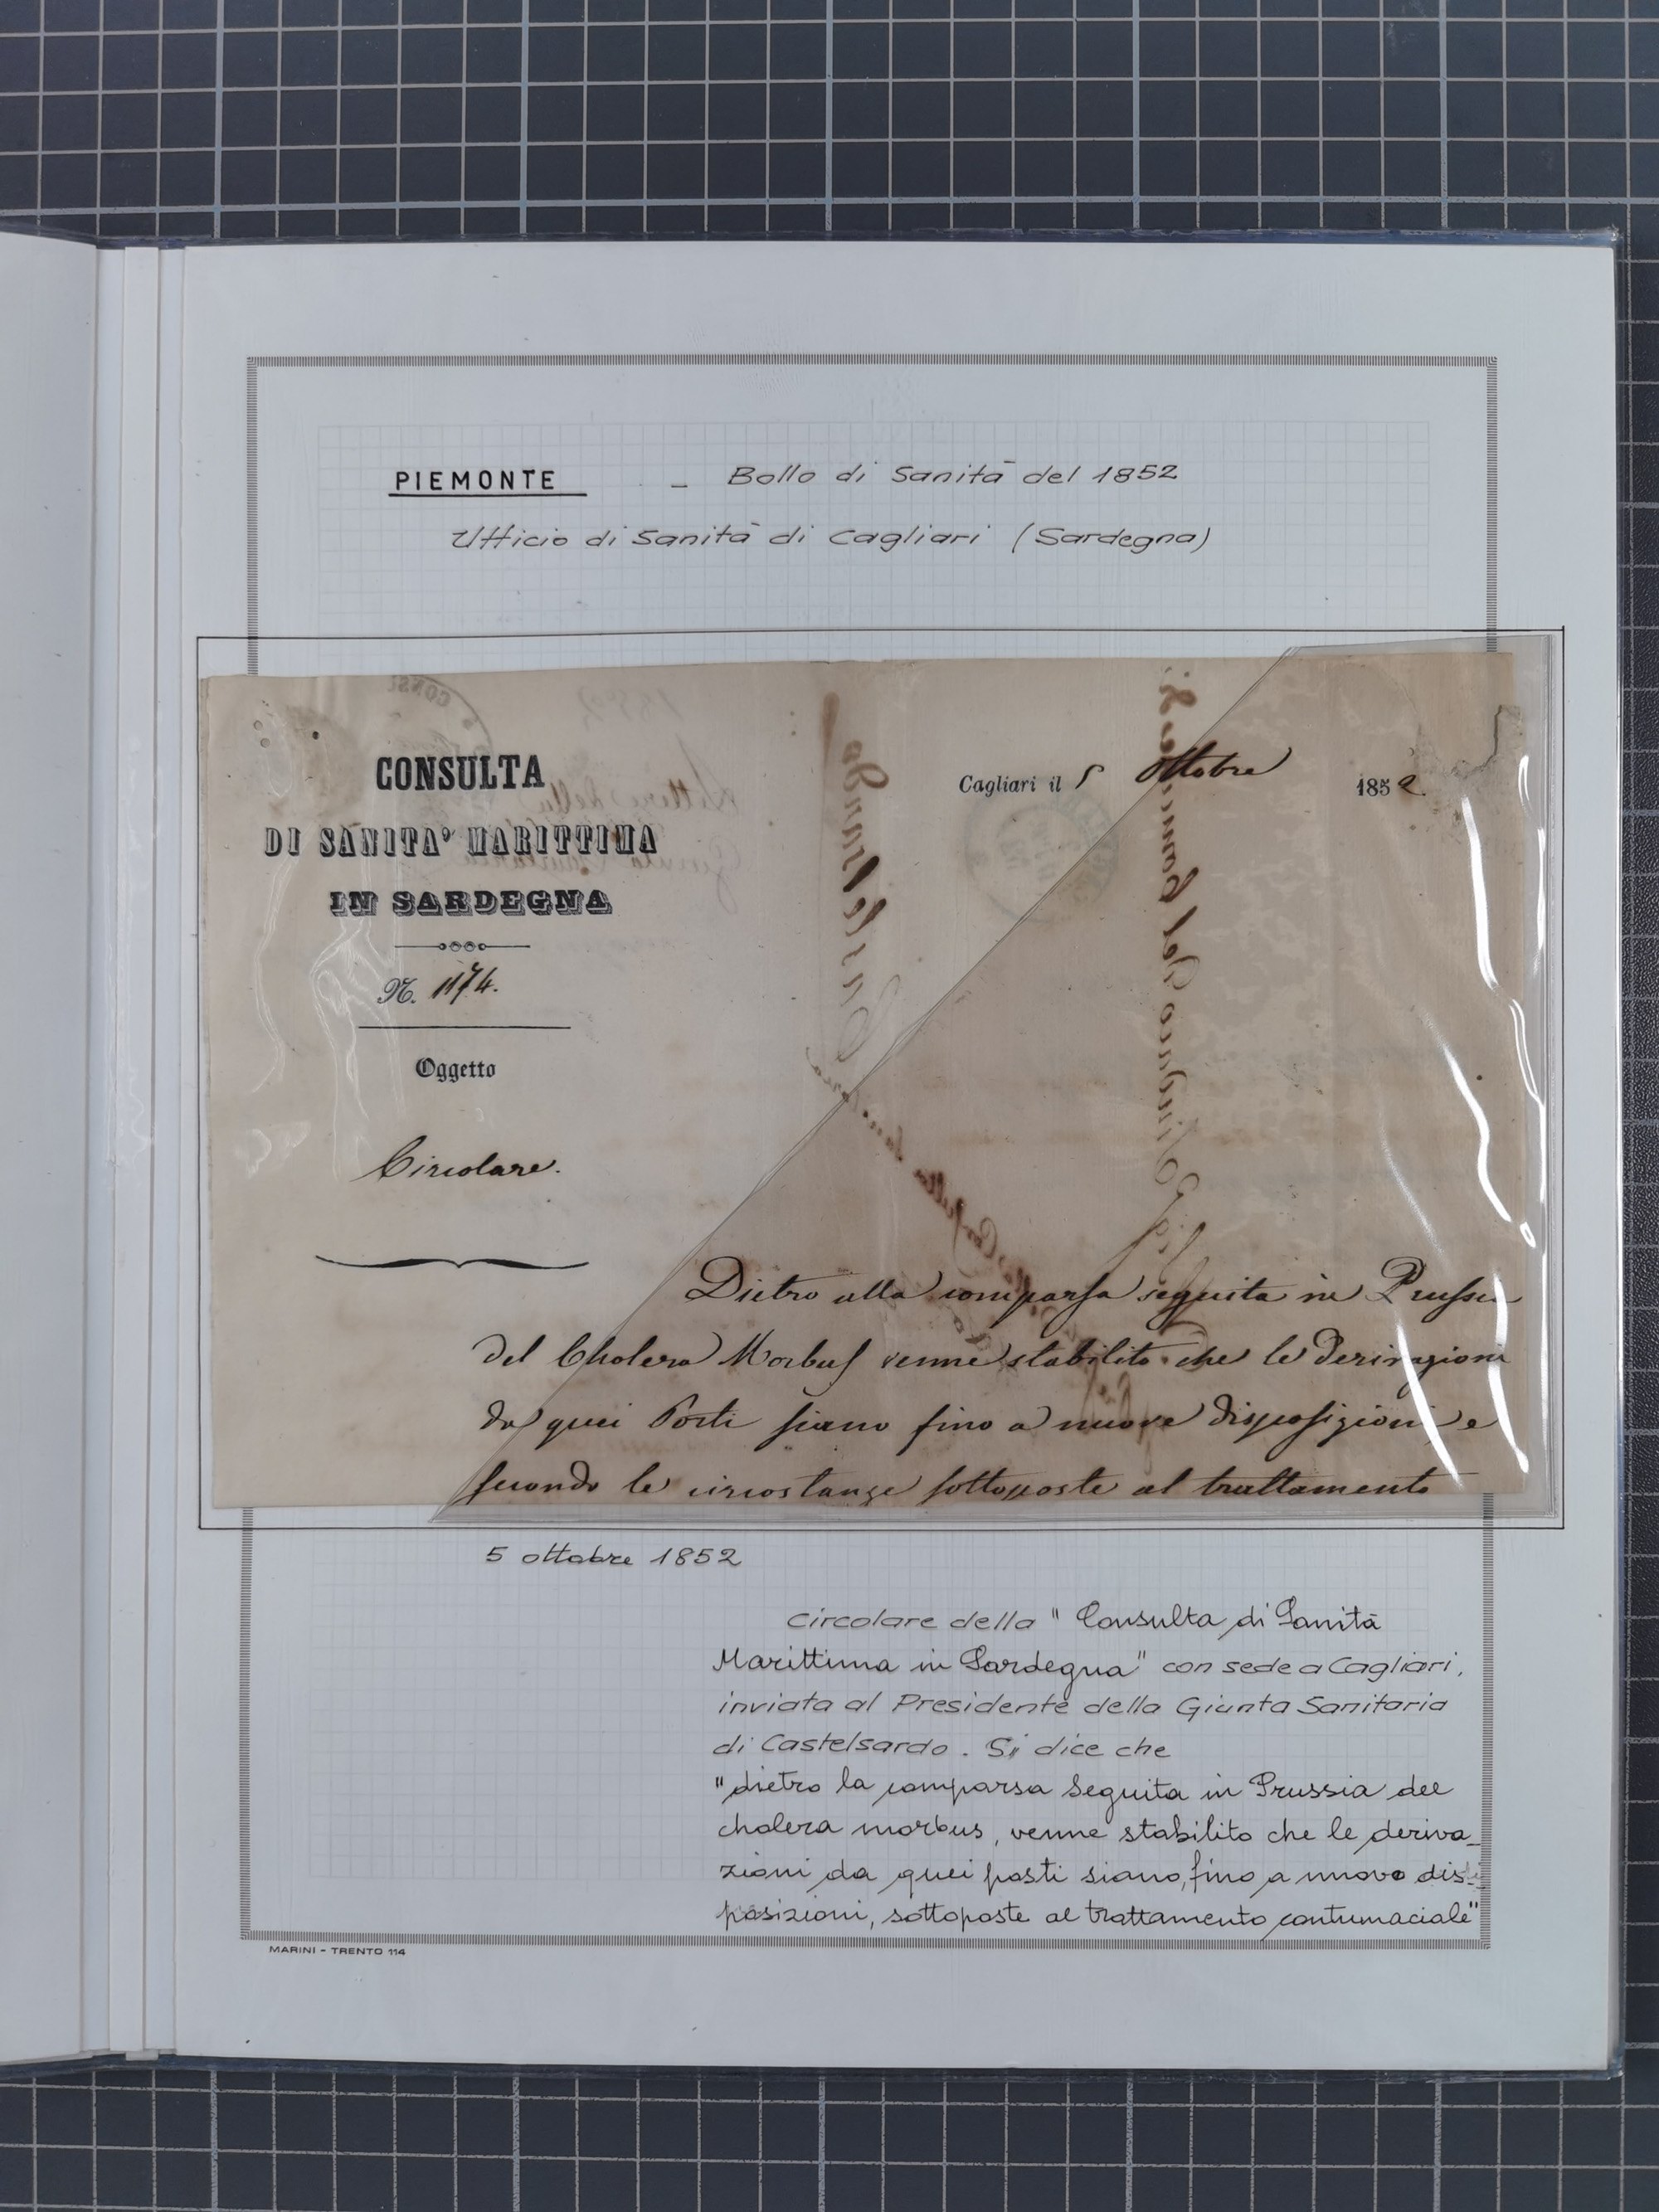 PIEMONTE - Bollo di Sanità del 1852
Ufficio di Sanità di Cagliari (Sardegna)
CONSULTA
DI SANITA' MARITTIMA
IN SARDEGNA
N. 1174.
Oggetto
Circolare.
Cagliari il 5 Ottobre 1852.
Dietro alla comparsa seguita in Prussia
del Cholera Morbus venne stabilito che le Derivazioni
da quei Porti siano fino a nuove disposizioni e
secondo le circostanze sottoposte al trattamento
5 ottobre 1852
Circolare della "Consulta di Sanità
Marittima in Sardegna" con sede a Cagliari,
inviata al Presidente della Giunta Sanitaria
di Castelsardo. Si dice che
"dietro la comparsa seguita in Prussia del
cholera morbus, venne stabilito che le deriva_
zioni da quei posti siano, fino a nuove dis_
posizioni, sottoposte al trattamento contumaciale"
MARINI - TRENTO 114